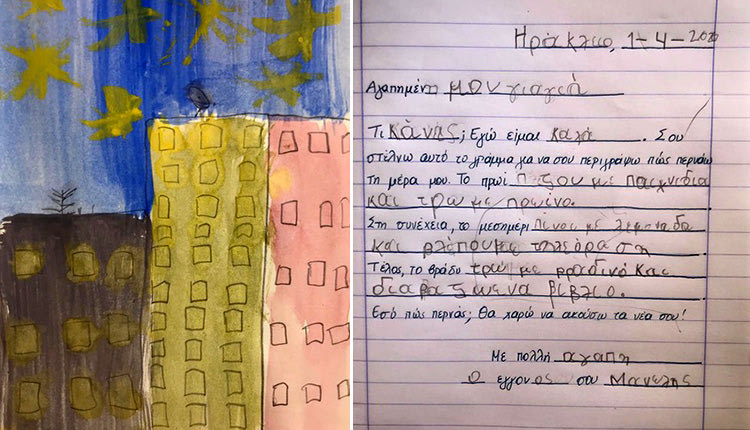 Ηράκλειο, 1-4-2020
Αγαπημένη μου γιαγιά
Τι κάνης; Εγώ είμαι καλά. Σου
στέλνω αυτό το γράμμα για να σου περιγράψω πώς περνάω
τη μέρα μου. Το πρωί πέζουμε παιχνίδια
και τρώμε πρωινο.
Στη συνέχεια, το μεσημέρι πίνουμε λεμονάδα
και βλέπουμε τηλεόραση
Τέλος, το βράδυ τρώμε βραδινό και
διαβάζωενα βιβλιο.
Εσύ πώς περνάς; Θα χαρώ να ακούσω τα νέα σου!
Με πολλή αγαπη
Ο εγγονος σου Μανωλης